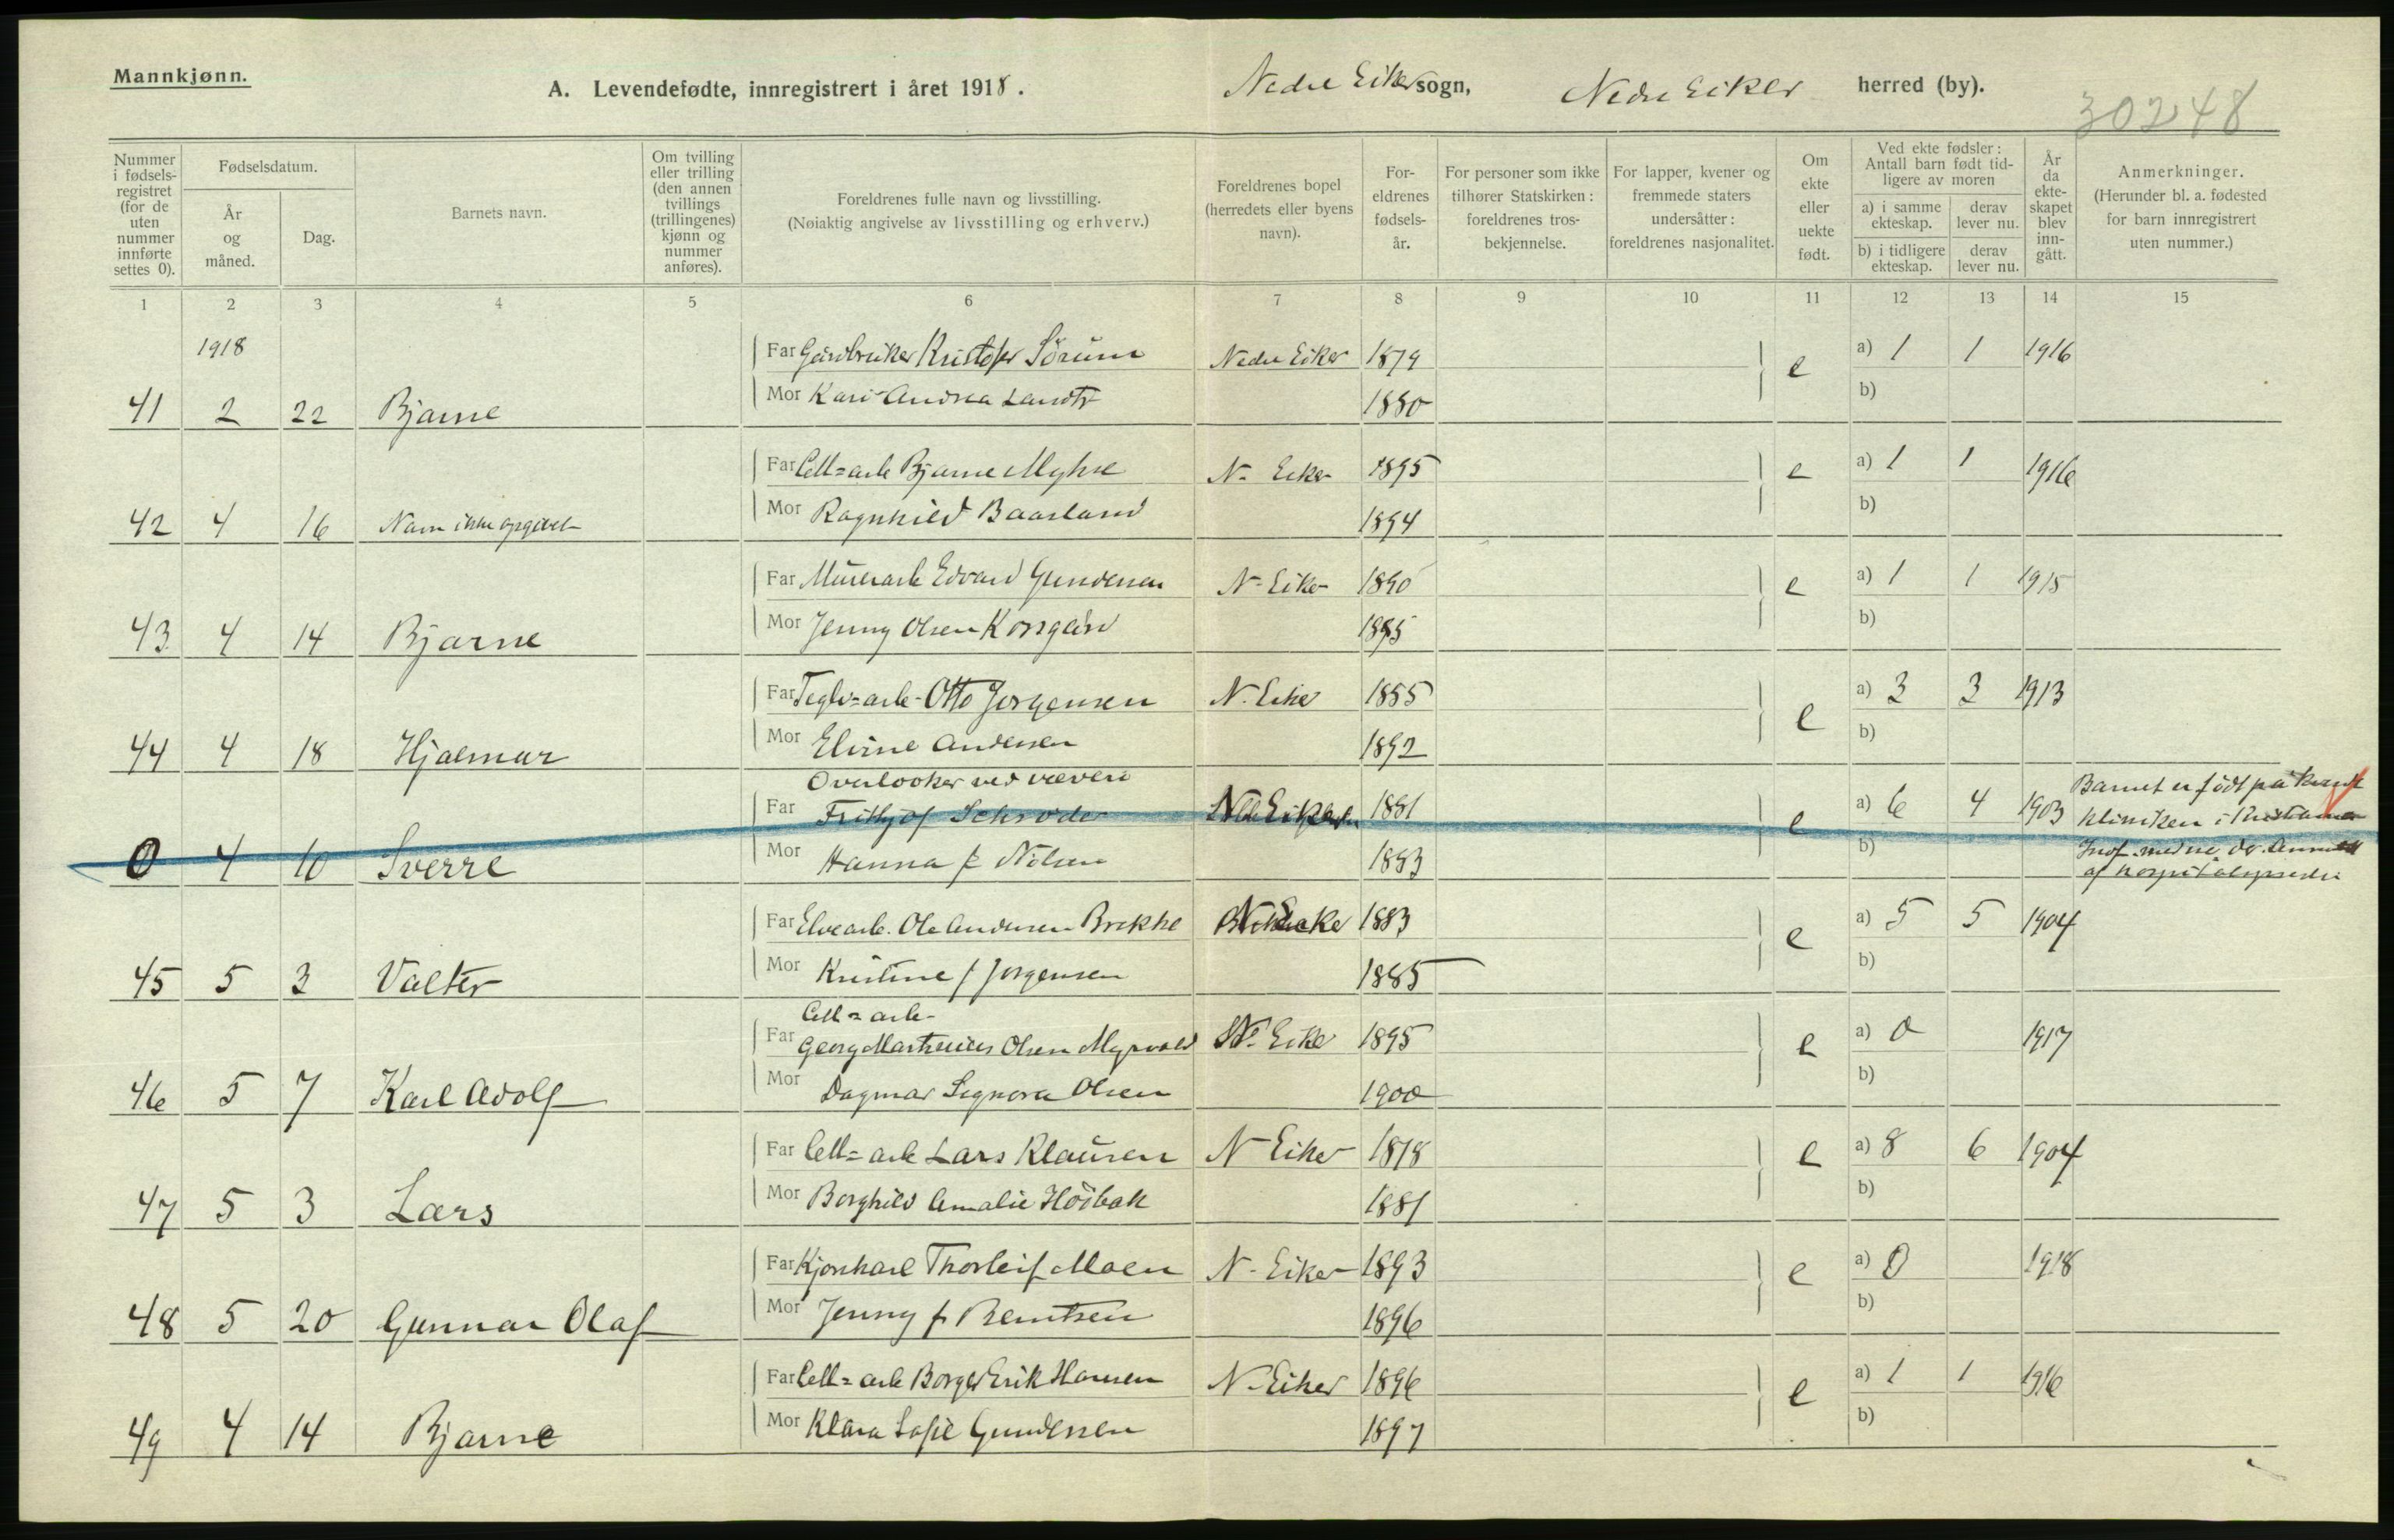 Mannkjønn.
A. Levendefødte, innregistrert i året 1918.
Nedre Eiker sogn, Nedre Eiker herred (by).
30248
Nummer i fødselsregistret (for de uten nummer innførte settes 0).
Fødselsdatum.
År og måned.
Dag.
Barnets navn.
Om tvilling eller trilling (den annen tvillings (trillingenes) kjønn og nummer anføres).
Foreldrenes fulle navn og livsstilling.
(Nøiaktig angivelse av livsstilling og erhverv.)
Foreldrenes bopel (herredets eller byens navn).
Foreldrenes fødselsår.
For personer som ikke tilhører Statskirken: foreldrenes trosbekjennelse.
For lapper, kvener og fremmede staters undersåtter: foreldrenes nasjonalitet.
Om ekte eller uekte født.
Ved ekte fødsler: Antall barn født tidligere av moren
a) i samme ekteskap. derav lever nu.
b) i tidligere ekteskap. derav lever nu.
År da ekteskapet blev inngått.
Anmerkninger.
(Herunder bl. a. fødested for barn innregistrert uten nummer.)
1 2 3 4 5 6 7 8 9 10 11 12 13 14 15
1918
Far Gårdbruker Kristofer Sörum Nedre Eiker 1879 e a) 1 1 1916
41 2 22 Bjarne Mor Kari Andrea Landts 1880 b)
Far Cell=arb Bjarne Myhre N- Eiker 1895 e a) 1 1 1916
42 4 16 Navn ikke opgivet Mor Ragnhild Baarland 1894 b)
Far Murerarb Edvard Gundersen N- Eiker 1890 e a) 1 1 1915
43 4 14 Bjarne Mor Jenny Olsen Korsgård 1895 b)
Far Teglv=arb- Otto Jørgensen N. Eiker 1885 e a) 3 3 1913
44 4 18 Hjalmar Mor Elvine Andersen 1892 b)
Overlooker ved væveri
Far Frithjof Schrøder 1881 e a) 6 4 1903 Barnet er født på kvinde
klinikken i Kristiania
0 4 10 Sverre Mor Hanna f Nilsen 1883 b)
af hospitalsprest
Far Elvearb. Ole Andersen Brekke 1883 e a) 5 5 1904
45 5 3 Valter Mor Kristine f Jørgensen 1885 b)
Cell=arb-
Far Georg Martinius Olsen Myrvold N- Eiker 1895 e a) 0 1917
46 5 7 Karl Adolf Mor Dagmar Signora Olsen 1900 b)
Far Cell=arb Lars Klausen N- Eiker 1878 e a) 8 6 1904
47 5 3 Lars Mor Borghild Amalie Höibak 1881 b)
Far Kjørekarl Thorleif Moen N- Eiker 1893 e a) 0 1918
48 5 20 Gunnar Olaf Mor Jenny f Berntsen 1896 b)
Far Cell=arb Borger Erik Hansen N- Eiker 1896 e a) 1 1 1916
49 4 14 Bjarne Mor Klara Sofie Gundersen 1897 b)